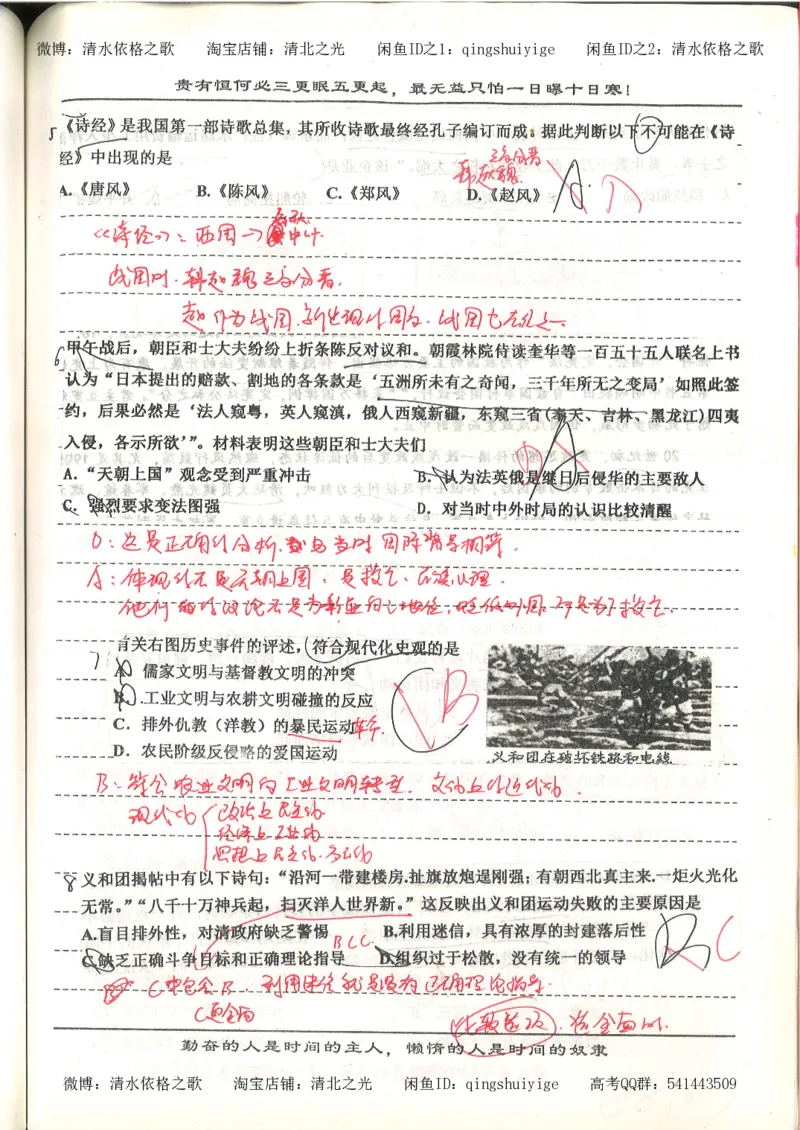 微博：清水依格之歌 淘宝店铺：清北之光 闲鱼ID之1：qingshuiyige 闲鱼ID之2：清水依格之歌
贵有恒何必三更眠五更起，最无益只怕一日曝十日寒！
5 《诗经》是我国第一部诗歌总集，其所收诗歌最终经孔子编订而成。据此判断以下不可能在《诗
经》中出现的是
三家分晋
韩赵魏
A.《唐风》 B.《陈风》 C.《郑风》 D.《赵风》 A D
《诗经》：西周→春秋中叶
战国时．韩赵魏三家分晋．
赵作为战国．新出现的国家．战国七雄之一．
6 甲午战后，朝臣和士大夫纷纷上折条陈反对议和。朝霞林院侍读奎华等一百五十五人联名上书
认为“日本提出的赔款、割地的各条款是‘五洲所未有之奇闻，三千年所无之变局’如照此签
约，后果必然是‘法人窥粤，英人窥滇，俄人西窥新疆，东窥三省(奉天、吉林、黑龙江)四夷
入侵，各示所欲’”。材料表明这些朝臣和士大夫们
D A
A．“天朝上国”观念受到严重冲击 B．认为法英俄是继日后侵华的主要敌人
C．强烈要求变法图强 D．对当时中外时局的认识比较清醒
D：这是正确的分析．与当时国际背景相符．
A：体现的不是天朝上国、是救亡、
7 有关右图历史事件的评述，符合现代化史观的是
A．儒家文明与基督教文明的冲突
B．工业文明与农耕文明碰撞的反应 C B
C．排外仇教（洋教）的暴民运动
D．农民阶级反侵略的爱国运动
义和团在破坏铁路和电线
B：符合农业文明向工业文明转型．
现代化 政治上民主化
经济上工业化
思想上民主化．
8 义和团揭帖中有以下诗句：“沿河一带建楼房,扯旗放炮逞刚强；有朝西北真主来.一炬火光化
无常。”“八千十万神兵起，扫灭洋人世界新。”这反映出义和团运动失败的主要原因是
A.盲目排外性，对清政府缺乏警惕 B.利用迷信，具有浓厚的封建落后性 B C
C.缺乏正确斗争目标和正确理论指导 D.组织过于松散，没有统一的领导
C中包含B．利用迷信就是没有正确理论指导．
C更全面
比较选项．选全面的．
勤奋的人是时间的主人，懒惰的人是时间的奴隶
微博：清水依格之歌 淘宝店铺：清北之光 闲鱼ID：qingshuiyige 高考QQ群：541443509